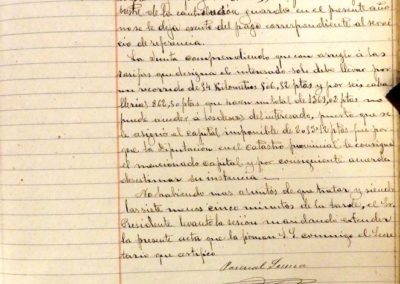 bustre de la contribución guarda en el presente año
no se le deja exento del pago correspondiente al servi
cio de referencia.
La Junta comprendiendo que con arreglo á las
tarifas que designa el interesado solo debe llevar por
un recorrido de 34 kilometros 506,52 ptas y por seis caba
llerias 862,50 ptas que hacen un total de 1369,02 ptas no
puede acceder a los deseos del interesado, puesto que se
le asignó el capital imponible de ptas fue por
que la Diputación en el catastro provincial le consigna
el mencionado capital y por consiguiente acuerda
desestimar su instancia.
No habiendo mas asuntos de que tratar, y siendo
las siete menos cinco minutos de la tarde, el Sr.
Presidente levanta la sesión mandando extender
la presente acta que la firman S.S. conmigo el Secre
tario que certifico.
Pascual